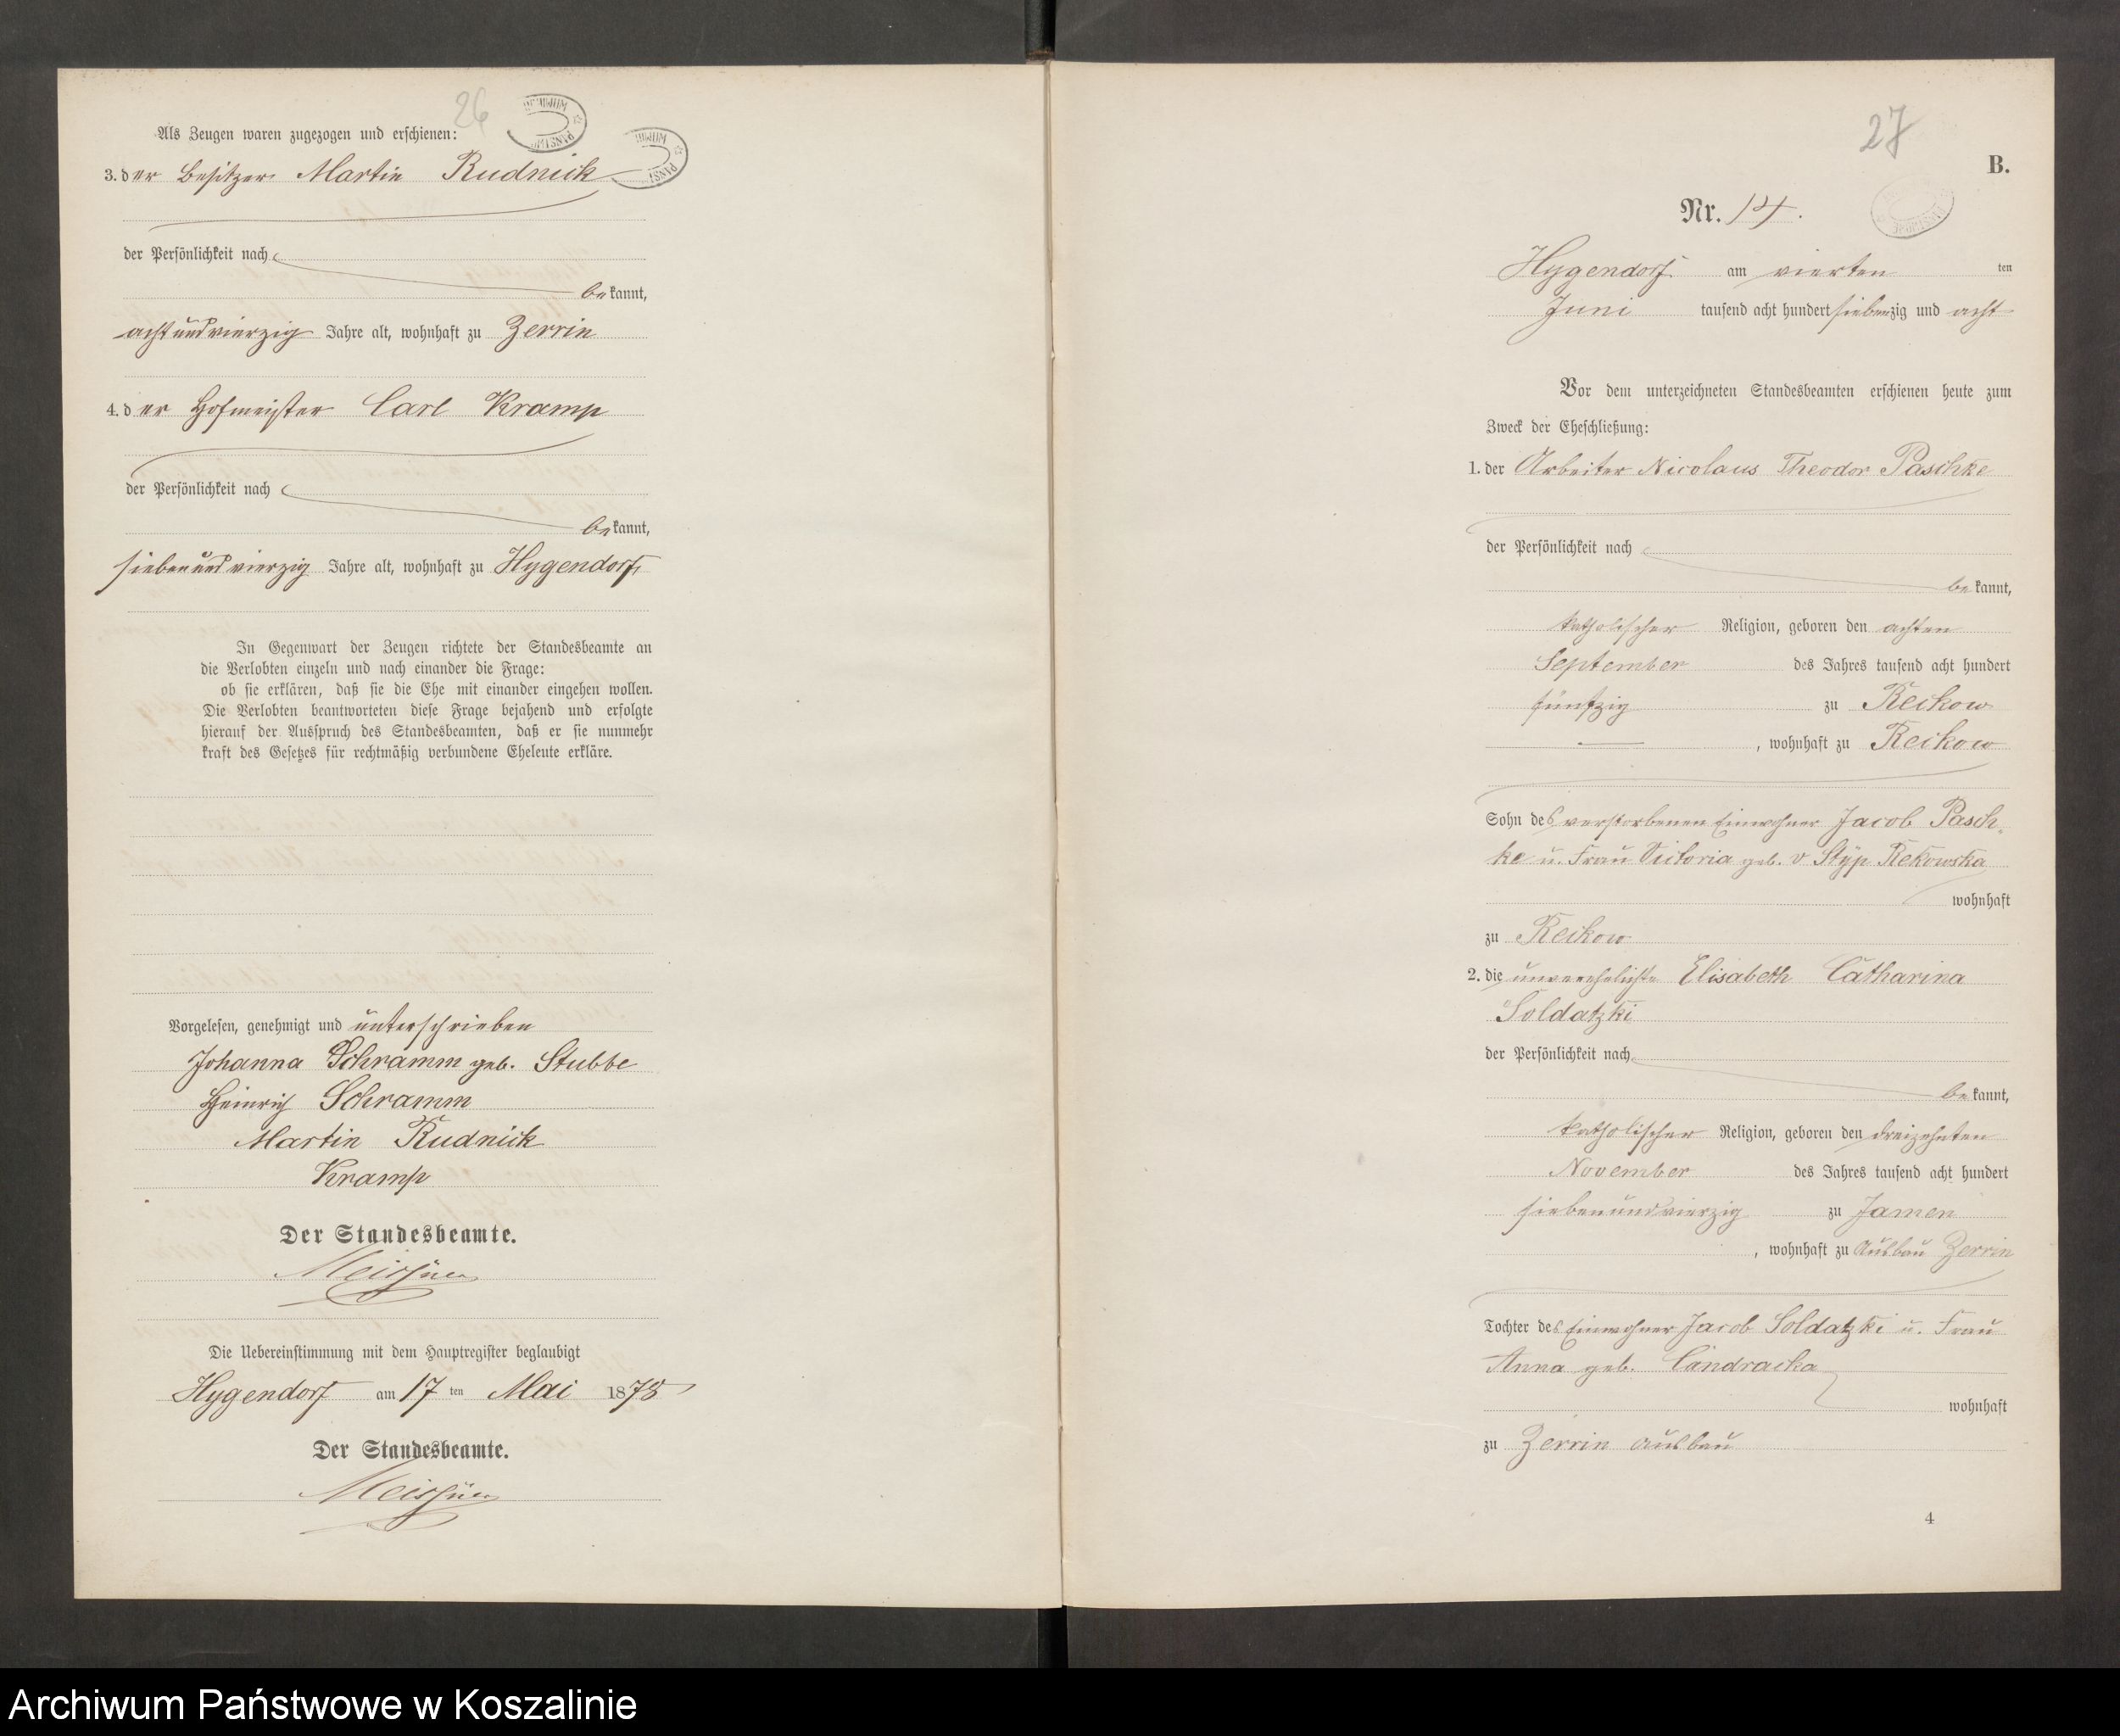 26
Als Zeugen waren zugezogen und erschienen:
3. der Besitzer Martin Rudnick
der Persönlichkeit nach
bekannt,
achtundvierzig Jahre alt, wohnhaft zu Zerrin
4. der Hofmeister Carl Kramp
der Persönlichkeit nach
bekannt,
siebenundvierzig Jahre alt, wohnhaft zu Hygendorf,
In Gegenwart der Zeugen richtete der Standesbeamte an
die Verlobten einzeln und nach einander die Frage:
ob sie erklären, daß sie die Ehe mit einander eingehen wollen.
Die Verlobten beantworteten diese Frage bejahend und erfolgte
hierauf der Ausspruch des Standesbeamten, daß er sie nunmehr
kraft des Gesetzes für rechtmäßig verbundene Eheleute erkläre.
Vorgelesen, genehmigt und unterschrieben
Johanna Schramm geb. Stubbe
Heinrich Schramm
Martin Rudnick
Kramp
Der Standesbeamte.
Meissner
Die Uebereinstimmung mit dem Hauptregister beglaubigt
Hygendorf am 17 ten Mai 1878
Der Standesbeamte.
Meissner
27
B.
Nr. 14.
Hygendorf am vierten ten
Juni tausend acht hundert siebenzig und acht
Vor dem unterzeichneten Standesbeamten erschienen heute zum
Zweck der Eheschließung:
1. der Arbeiter Nicolaus Theodor Paschke
der Persönlichkeit nach
bekannt,
katholischer Religion, geboren den achten
September des Jahres tausend acht hundert
fünfzig zu Reckow
, wohnhaft zu Reckow
Sohn des verstorbenen Einwohner Jacob Pasch-
ke u. Frau Victoria geb. v Styp Rekowska
wohnhaft
zu Reckow
2. die unverehelichte Elisabeth Catharina
Soldatzki
der Persönlichkeit nach
bekannt,
katholischer Religion, geboren den dreizehnten
November des Jahres tausend acht hundert
siebenundvierzig zu Jamen
, wohnhaft zu Ausbau Zerrin
Tochter des Einwohner Jacob Soldatzki u. Frau
Anna geb. Cindracka
wohnhaft
zu Zerrin Ausbau
4
Archiwum Państwowe w Koszalinie